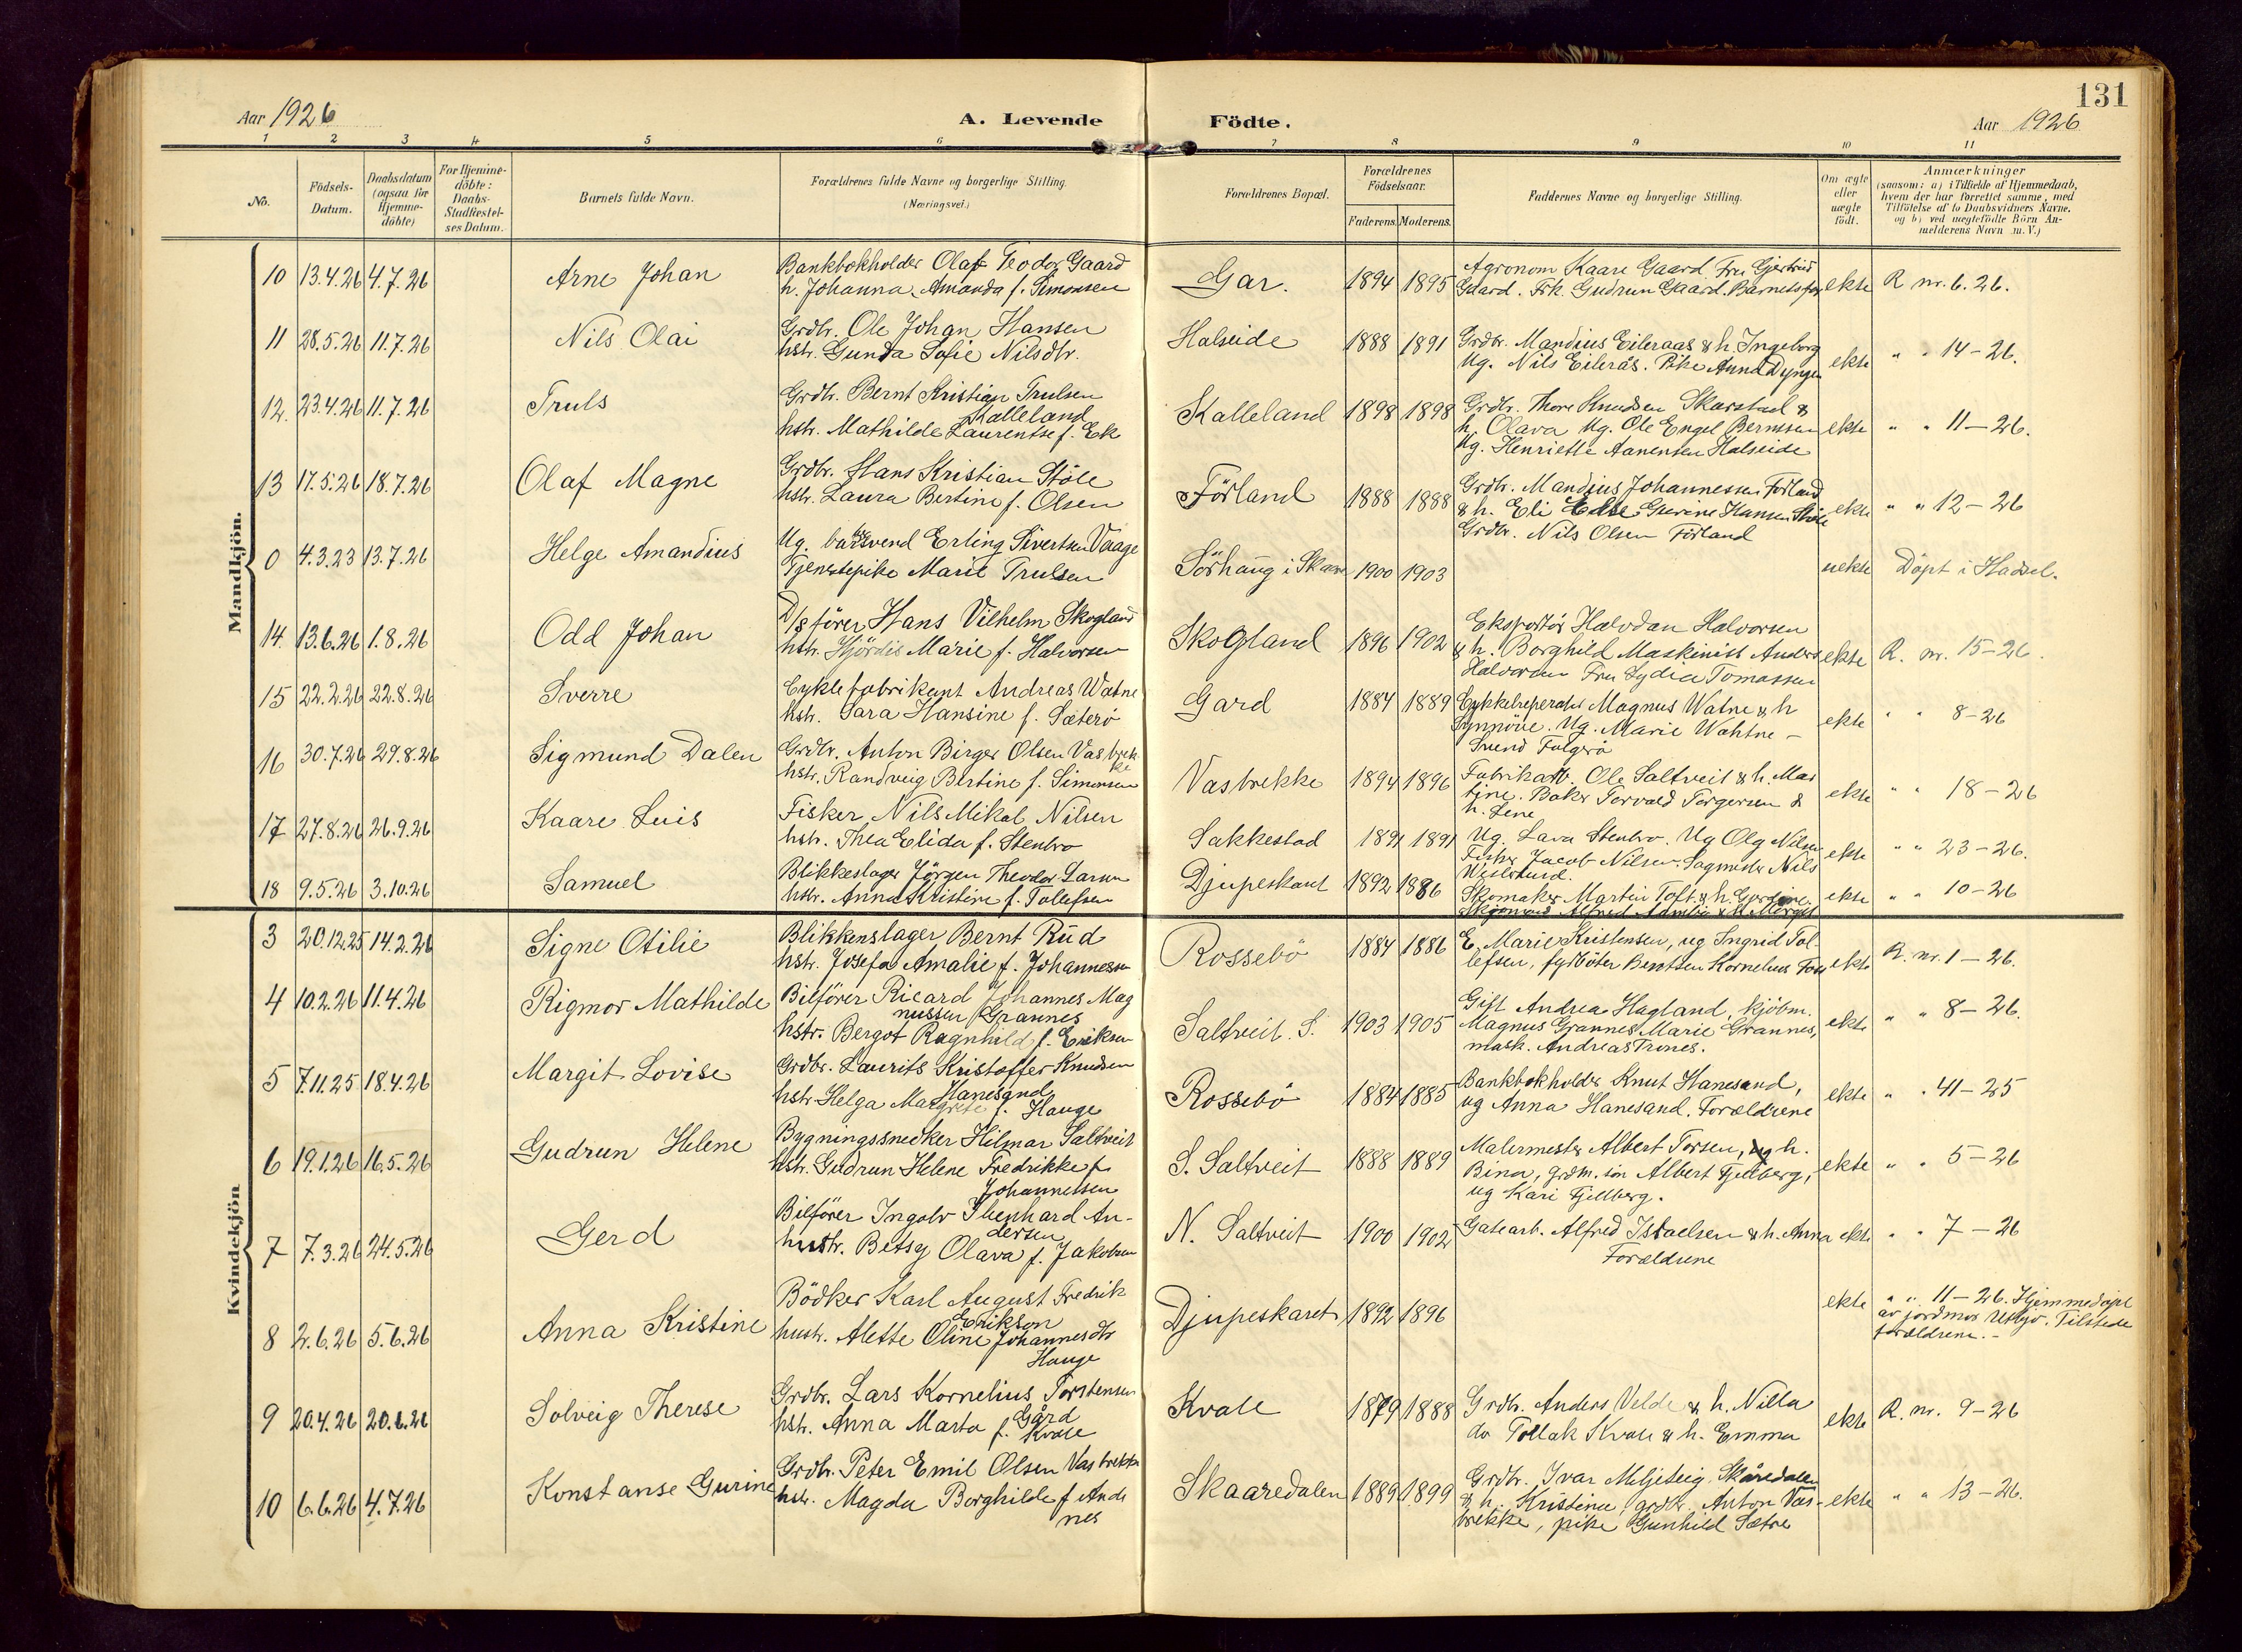 131
Aar 1926
A. Levende Födte.
Aar 1926
1 2 3 4 5 6 7 8 9 10 11
No.
Födsels-
Datum.
Daabsdatum
(ogsaa for
Hjemme-
döbte)
For Hjemme-
döbte:
Daabs-
Stadfæstel-
ses Datum.
Barnets fulde Navn.
Forældrenes fulde Navne og borgerlige Stilling.
(Næringsvei.)
Forældrenes Bopæl.
Forældrenes
Födselsaar.
Faderens. Moderens.
Faddernes Navne og borgerlige Stilling.
Om ægte
eller
uægte
födt.
Anmærkninger
(saasom: a) i Tilfælde af Hjemmedaab,
hvem der har forrettet samme, med
Tilföielse af to Daabsvidners Navne,
og b) ved uægtefödte Börn An-
melderens Navn m. V.)
Mandkjön.
10 13.4.26 4.7.26 Arne Johan
Bankbokholder Olaf Teodor Gaard
h. Johanna Amanda f. Simonsen
Gar. 1894 1895
Agronom Kaare Gaard. Fru Gjertrud
Gaard. Frk. Gudrun Gaard. Barnets far
ekte R nr. 6. 26.
11 28.5.26 11.7.26 Nils Olai
Grdbr. Ole Johan Hansen
hstr. Gunda Sofie Nilsdtr.
Halseide 1888 1891
Grdbr. Mandius Eileraas & h. Ingeborg
Ug. Nils Eilerås. Pike Anna Dyngen
ekte " " 14-26.
12. 23.4.26 11.7.26 Truls
Grdbr. Bernt Kristian Trulsen
Kalleland
hstr. Mathilde Laurentse f. Ek
Kalleland 1898 1898
Grdbr. Thore Knudsen Skarstad &
h. Olava Ug. Ole Engel Berntsen
Ug. Henriette Aanensen Halseide
ekte " " 11-26.
13 17.5.26 18.7.26 Olaf Magne
Grdbr. Hans Kristian Stöle
hstr. Laura Bertine f. Olsen
Förland 1888 1888
Grdbr. Mandius Johannessen Förland
& h. Eli Gurine Hansen Stöle
Grdbr. Nils Olsen Förland
ekte " " 12-26
0 4.3.23 13.7.26 Helge Amandius
Ug. Erling Sivertsen Vaage
Tjenestepike Marie Trulsen
Sörhaug i Skaare 1900 1903
uekte Döpt i Hadsel.
14. 13.6.26 1.8.26 Odd Johan
D/s förer Hans Vilhelm Skogland
hstr. Hjördis Marie f. Halvorsen
Skogland 1896 1902
Eksportör Halvdan Halvorsen
& h. Borghild Maskinist Anders
Halvorsen Fru Lydia Tomassen
ekte R. nr. 15-26.
15 22.2.26 22.8.26 Sverre
Cyklefabrikant Andreas Watne
hstr. Sara Hansine f. Sæterö
Gard 1884 1889
Cykkelreperatör Magnus Watne & h
Synnöve. Ug. Marie Wahtne -
Svend Folgerö
ekte " " 8-26
16 30.7.26 29.8.26 Sigmund Dalen
Grdbr. Anton Birger Olsen Vasbrek-
ke
hstr. Randveig Bertine f. Simonsen
Vasbrekke 1894 1896
Fabrikarb. Ole Saltveit & h. Mar
tine. Baker Torvald Torgersen &
h. Lene
ekte " " 18-26
17 27.8.26 26.9.26 Kaare Luis
Fisker Nils Mikal Nilsen
hstr. Thea Elida f. Stenbro
Sakkestad 1891 1891
Ug. Lava Stenbro. Ug Olg Nilsen
Fisker Jacob Nilsen. Sagmester Nils
Westerlund.
ekte " " 23-26.
18 9.5.26 3.10.26 Samuel
Blikkeslager Jörgen Theodor Larsen
hstr. Anna Kristine f. Tollefsen
Djupeskaret 1892 1886
Skomaker Martin Toft. & h. Gurine.
Alfred & h. Margit
ekte " " 10-26
Kvindekjön
3 20.12.25 14.2.26 Signe Otilie
Blikkenslager Bernt Rud
hstr. Josefa Amalie f. Johannesen
Rossebö 1884 1886
E. Marie Kristensen, ug Ingrid Tol-
lefsen, fyrböter Berntsen Kornelius Foss
ekte R. nr. 1-26.
4 10.2.26 11.4.26 Rigmor Mathilde
Bilförer Ricard Johannes Mag
nussen Grannes
hstr. Bergot Ragnhild f. Eriksen
Saltveit. S. 1903 1905
Gift Andrea Hagland, kjöbm.
Magnus Grannes, Marie Grannes,
mask. Andreas Trones.
ekte " " 8-26.
5 7.11.25 18.4.26 Margit Lovise
Grdbr. Laurits Kristoffer Knudsen
Hanesand
hstr. Helga Margrete f. Hauge
Rossebö 1884 1885
Bankbokholder Knut Hanesand,
ug Anna Hanesand. Forældrene
ekte " " 41-25
6 19.1.26 16.5.26 Gudrun Helene
Bygningssnedker Hilmar Saltveit
hstr. Gudrun Helene Fredrikke f.
Johannessen
S. Saltveit 1888 1889
Malermester Albert Torsen, & h.
Bina, grdm. sön Albert Fjellberg,
ug Kari Fjellberg.
ekte " " 5-26
7 7.3.26 24.5.26 Gerd
Bilförer Ingolv Thenhard An-
dersen
hustr. Betsy Olava f. Jakobsen
N. Saltveit 1900 1902
Gatearb. Alfred Israelsen & h. Anna
Forældrene
ekte " " 7-26
8 2.6.26 5.6.26 Anna Kristine
Bödker Karl August Fredrik
Erikson
hustr. Alette Oline Johannesdtr
Hauge
Djupeskaret 1892 1896
ekte " " 11-26. Hjemmedöpt
av jordmor Utbjö. Tilstede
forældrene. -
9 20.4.26 20.6.26 Solveig Therese
Grdbr. Lars Kornelius Torstensen
Gård
hstr. Anna Marta f. Kvale
Kvale 1879 1888
Grdbr. Anders Velde & h. Nilla
do Tollak Kvale & h. Emma
ekte R. nr. 9-26
10 6.6.26 4.7.26 Konstanse Gurine
Grdbr. Peter Emil Olsen Vasbrekke
hstr. Magda Borghilde f Ande
nes
Skaaredalen 1889 1899
Grdbr. Ivar Meljeteig, Skåredalen
& h. Kristine, grdbr. Anton Vas-
brekke, pike Gunhild Sætre
ekte " " 13-26.